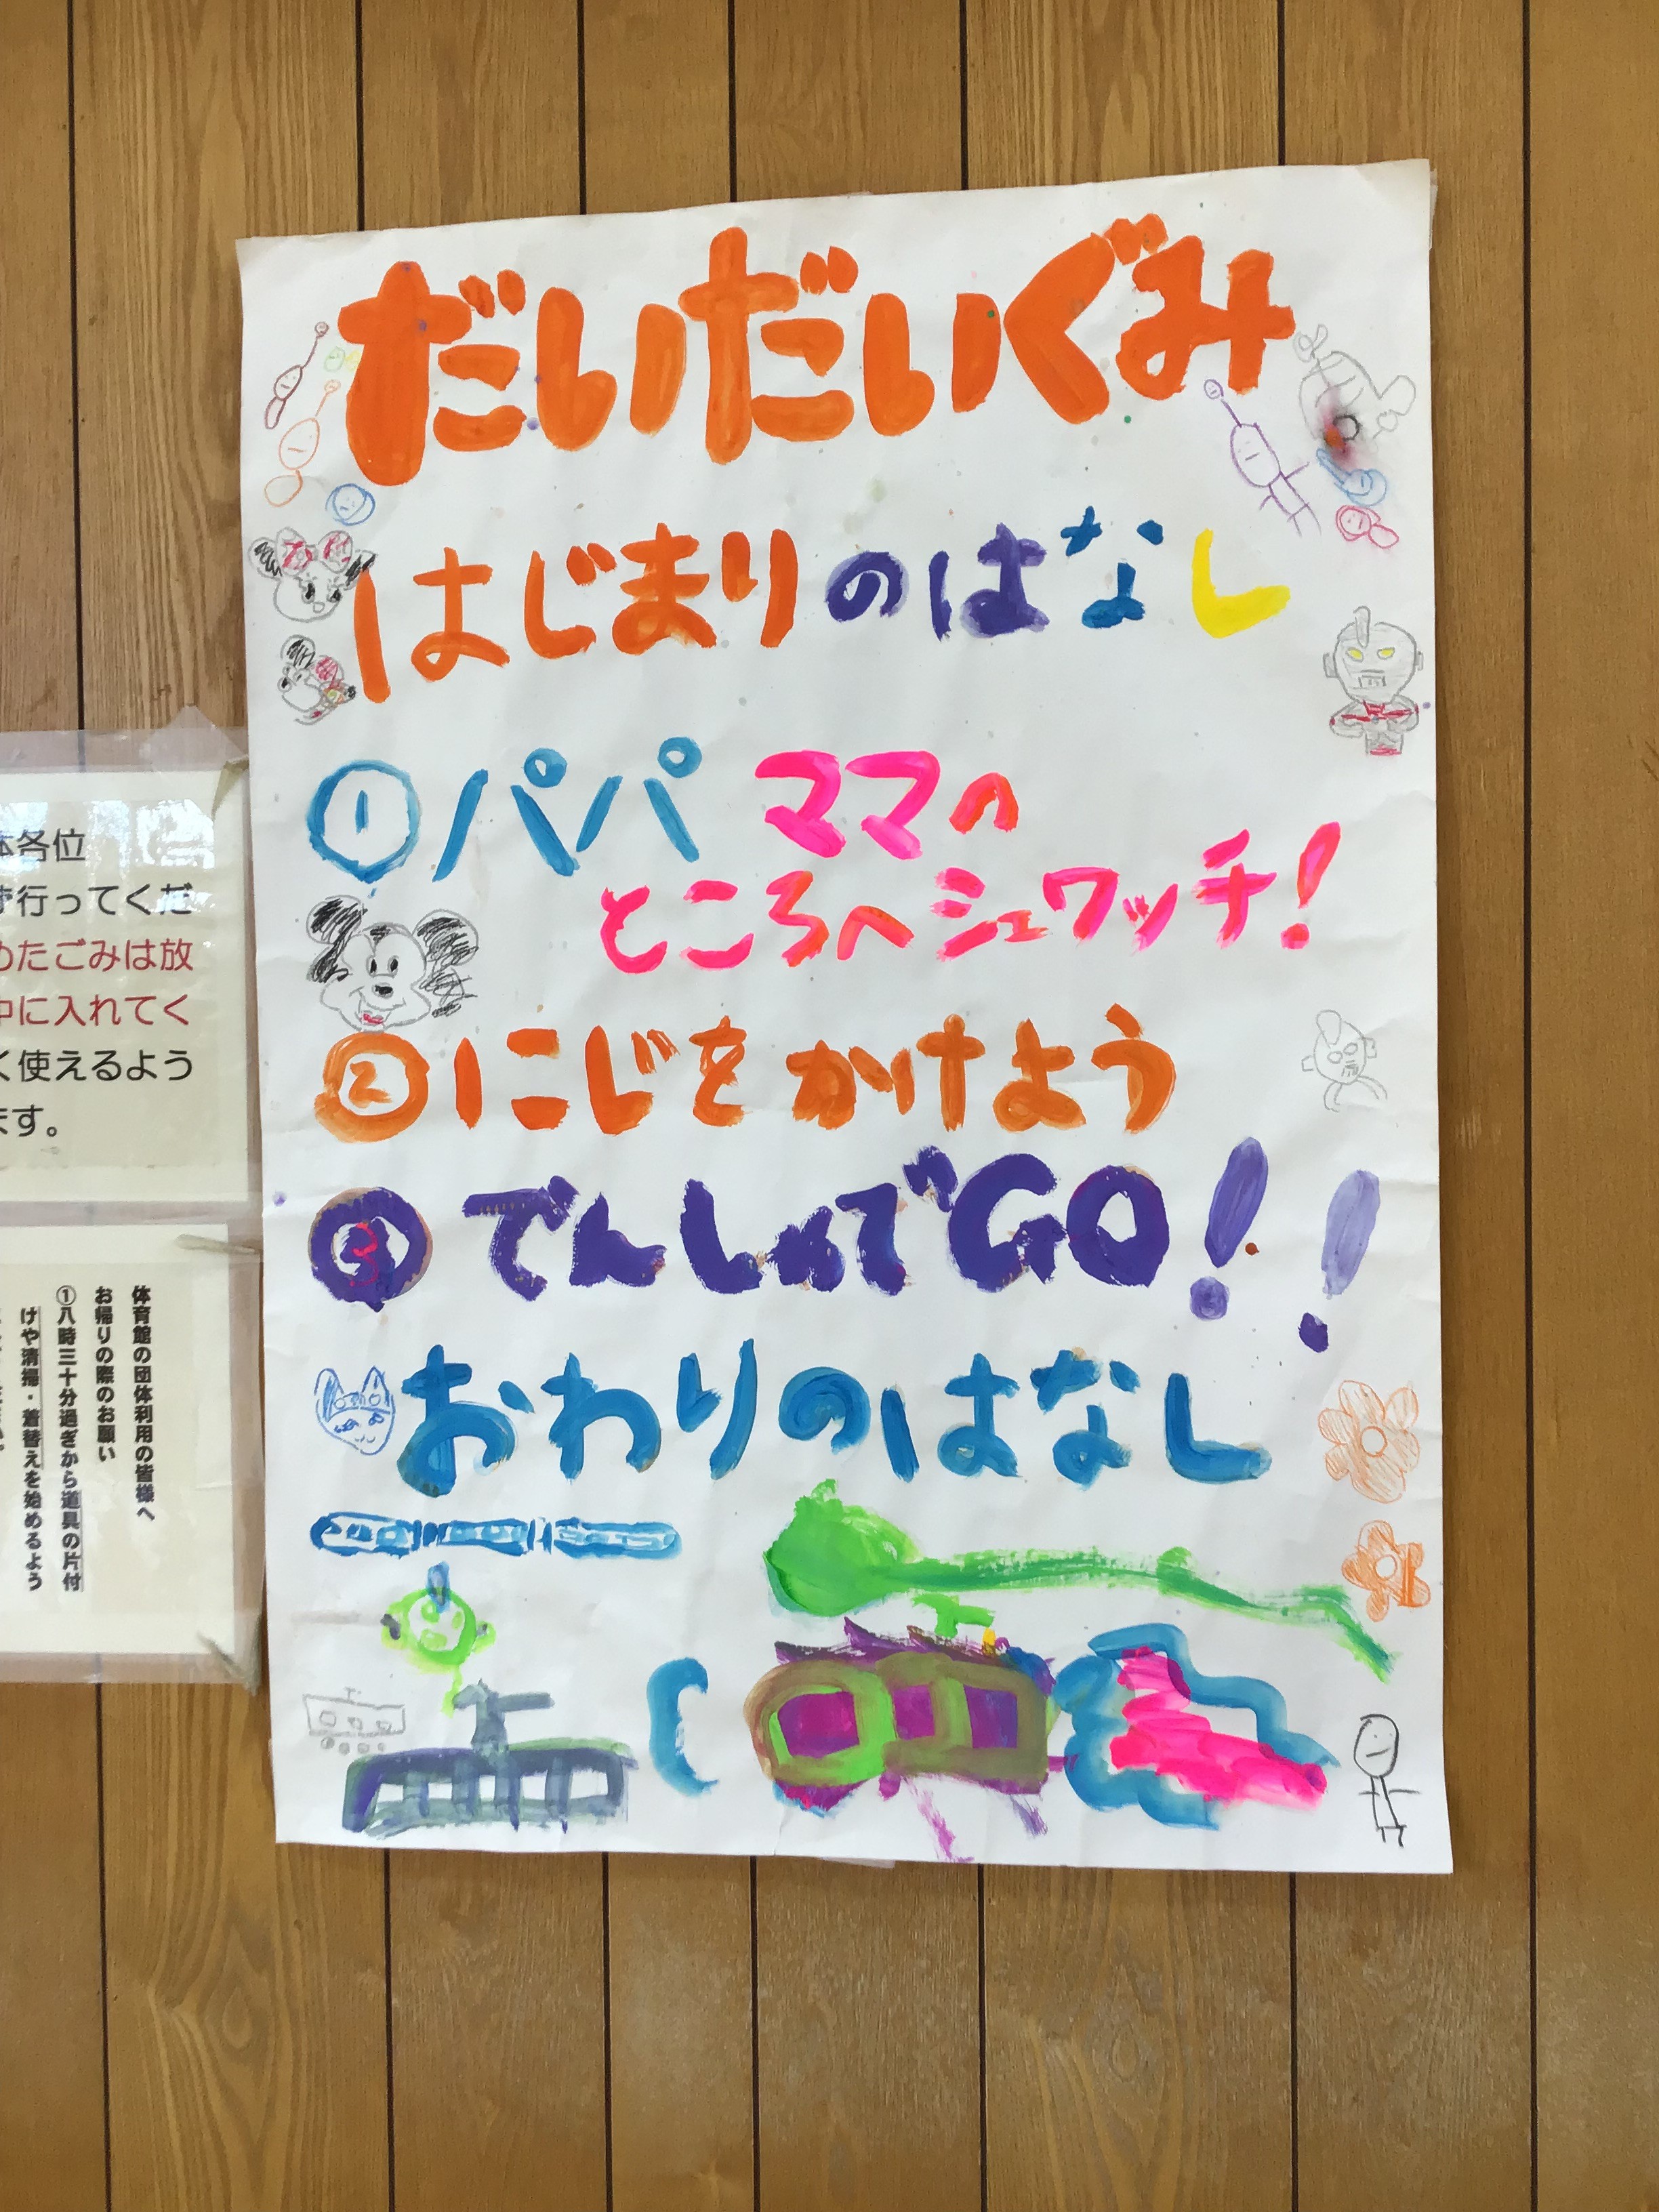 だいだいぐみ
はじまりのはなし
① パパ ママの
ところへシュワッチ!
② にじをかけよう
③ でんしゃでGO!!
おわりのはなし
各位
行ってくだ
めたごみは放
中に入れてく
く使えるよう
ます。
体育館の団体利用の皆様へ
お帰りの際のお願い
①八時三十分過ぎから道具の片付
けや清掃・着替えを始めるよう